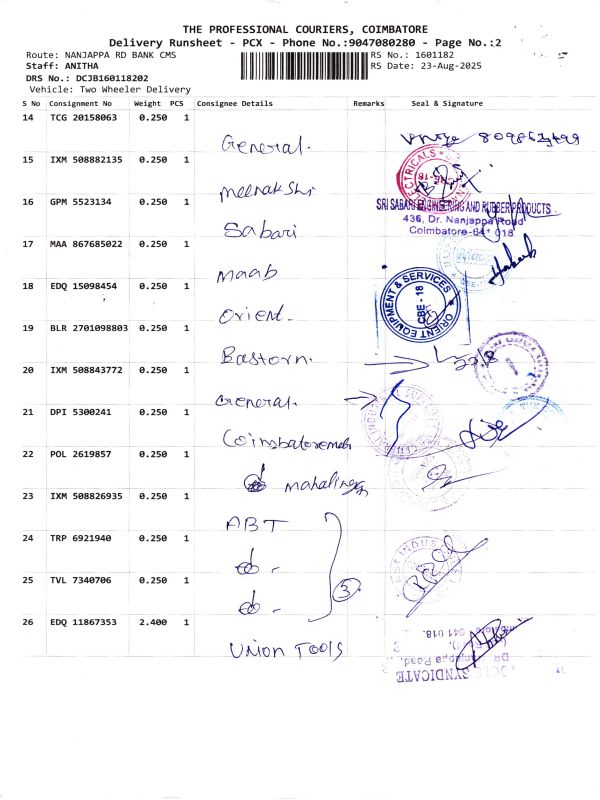 THE PROFESSIONAL COURIERS, COIMBATORE
Delivery Runsheet - PCX - Phone No.:9047080280 - Page No.:2
Route: NANJAPPA RD BANK CMS RS No.: 1601182
Staff: ANITHA RS Date: 23-Aug-2025
DRS No.: DCJB160118202
Vehicle: Two Wheeler Delivery
S No Consignment No Weight PCS Consignee Details Remarks Seal & Signature
14 TCG 20158063 0.250 1
General.
15 IXM 508882135 0.250 1
meenakshi
16 GPM 5523134 0.250 1
SRI SABARI ENGINEERING AND RUBBER PRODUCTS
436, Dr. Nanjappa Road
Coimbatore-641 018
Sabari
17 MAA 867685022 0.250 1
maab
18 EDQ 15098454 0.250 1
ORIENT EQUIPMENT & SERVICES
CBE - 18
Orient.
19 BLR 2701098803 0.250 1
Bastorn.
20 IXM 508843772 0.250 1
General.
21 DPI 5300241 0.250 1
22 POL 2619857 0.250 1
23 IXM 508826935 0.250 1
ABT
24 TRP 6921940 0.250 1
do -
25 TVL 7340706 0.250 1
3
do -
26 EDQ 11867353 2.400 1
641 018.
Union Tools
SYNDICATE